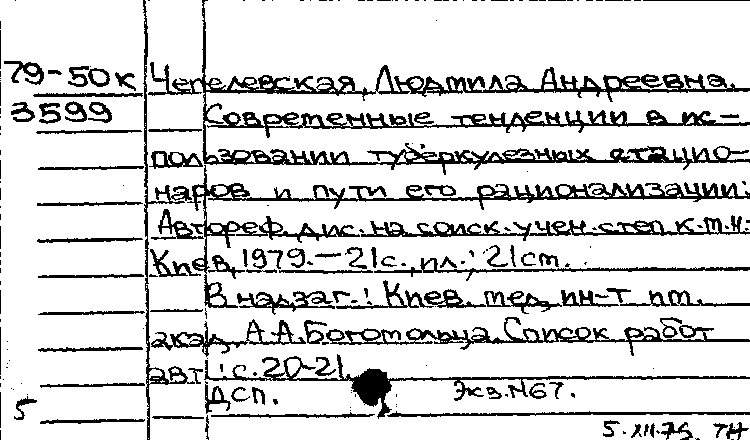 79-50к Чепелевская, Людмила Андреевна.
3599 Современные тенденции в ис-
пользовании туберкулезных стацио-
наров и пути его рационализации:
Автореф. дис. на соиск. учен. степ к.м.н:
Киев, 1979. — 21с., ил.; 21 см.
В надзаг.: Киев. мед, ин-т им.
акад. А.А.Богомольца. Список работ
авт.: с. 20-21.
ДСП. Экз.№67.
5
5.XII.79.